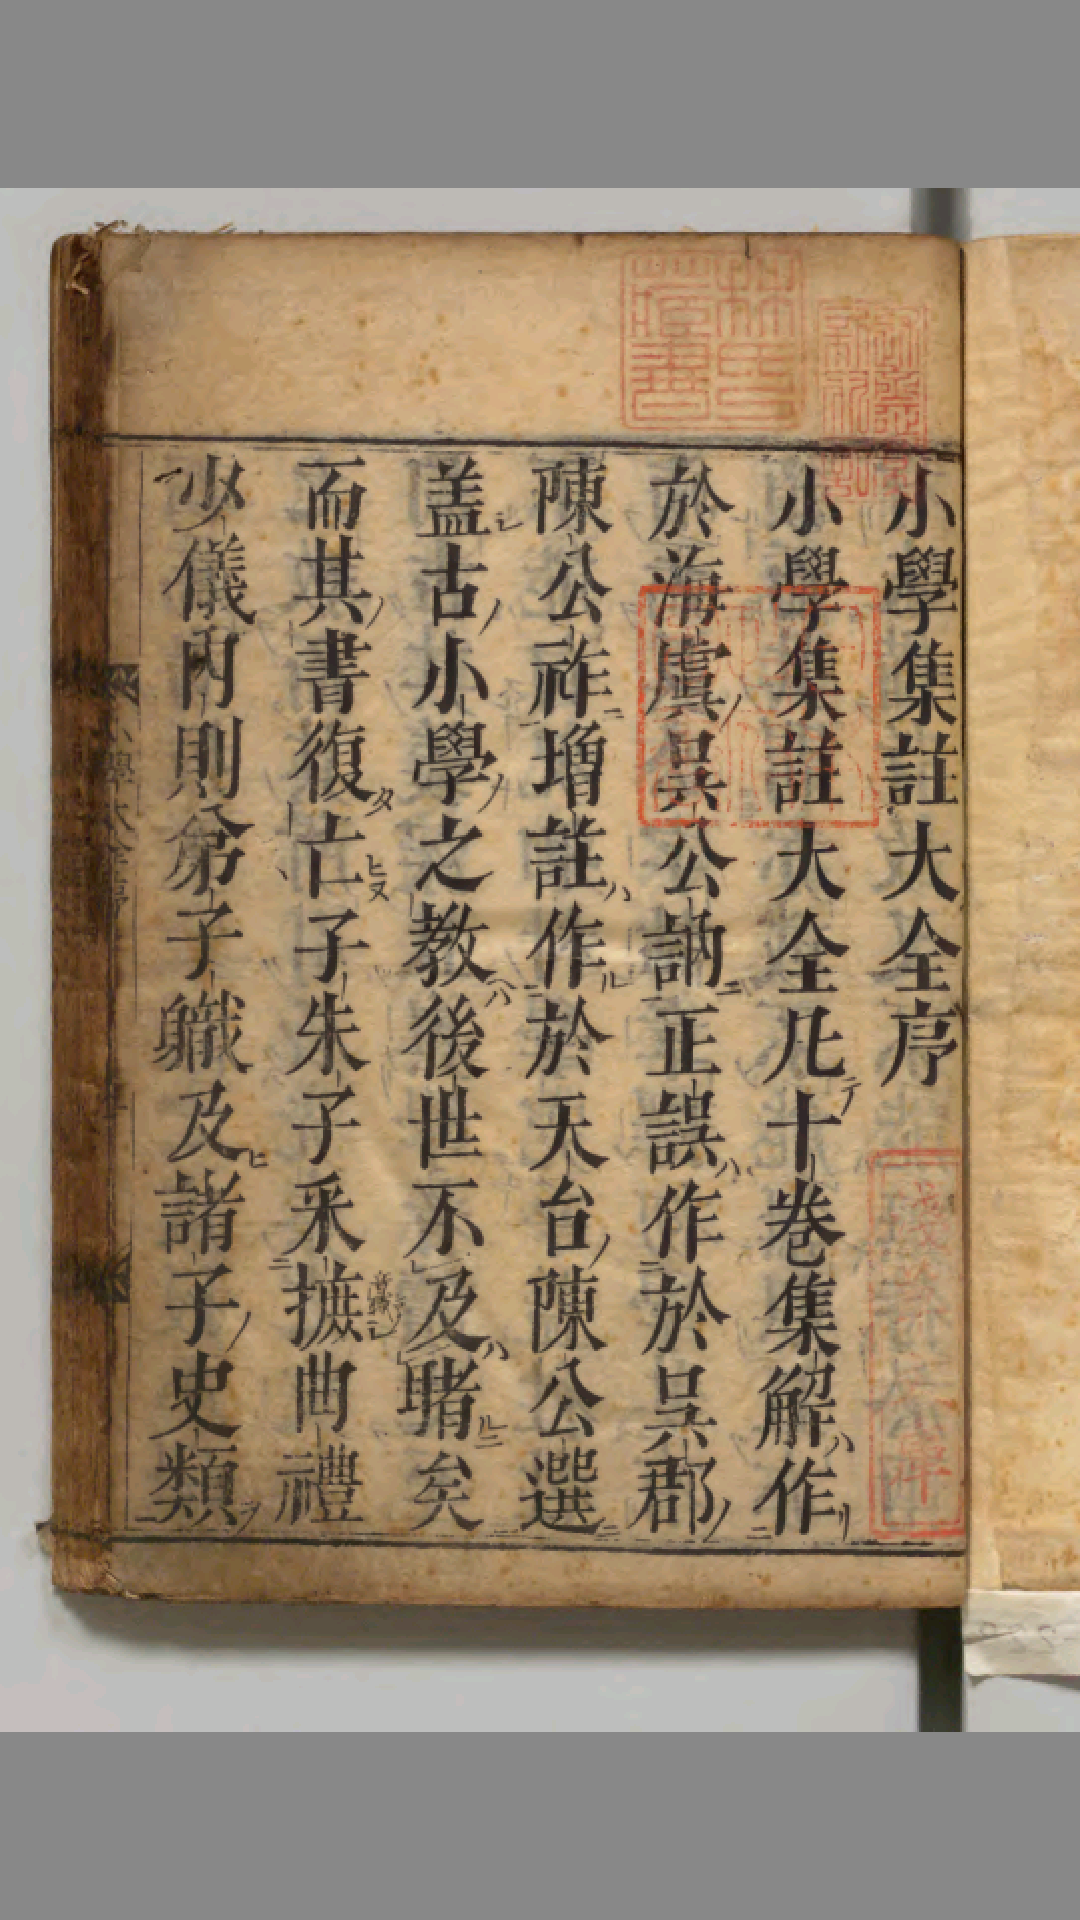 小學集註大全序
小學集註大全凡十卷集解作
於海虞吳公訥正誤作於吳郡
陳公祚增註作於天台陳公選
盖古小學之教後世不及睹矣
而其書復亡子朱子采摭曲禮
少儀內則弟子職及諸子史類
林氏藏書